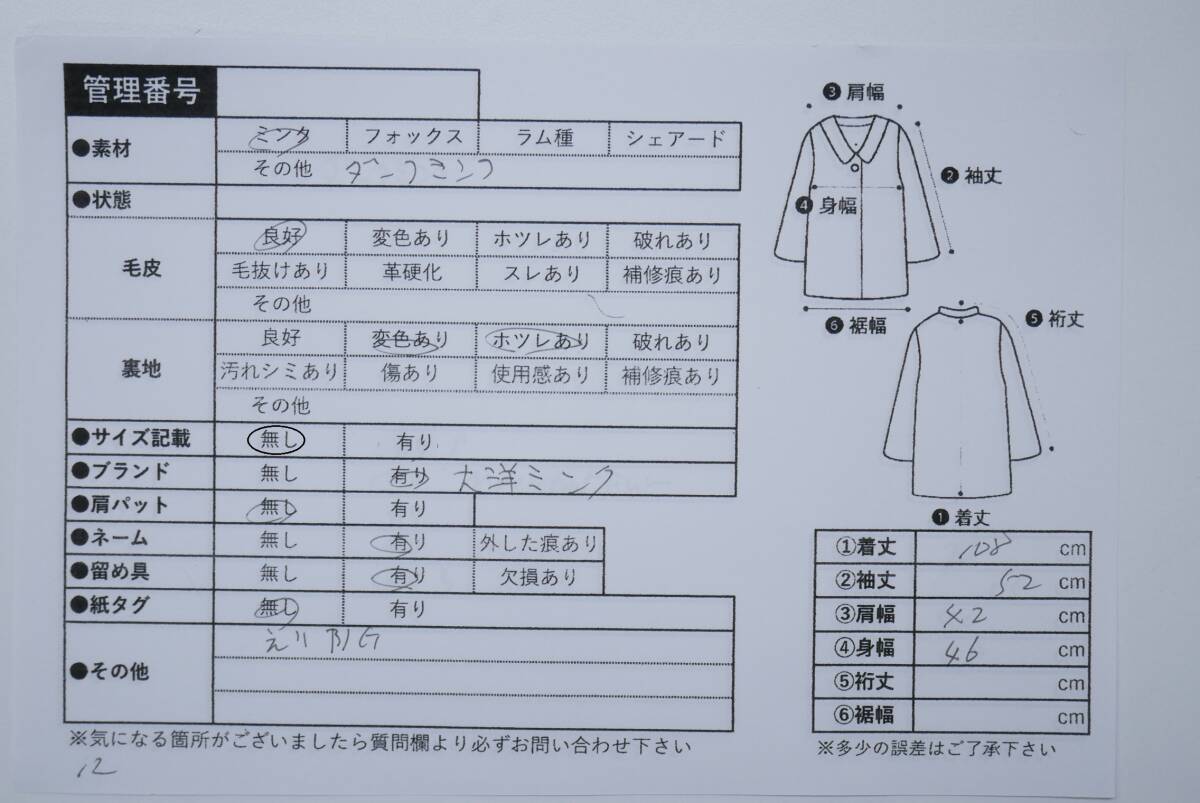 管理番号
●素材 ミンク フォックス ラム種 シェアード
その他 ダークミンク
●状態
毛皮 良好 変色あり ホツレあり 破れあり
毛抜けあり 革硬化 スレあり 補修痕あり
その他
裏地 良好 変色あり ホツレあり 破れあり
汚れシミあり 傷あり 使用感あり 補修痕あり
その他
●サイズ記載 無し 有り
●ブランド 無し 有り 大洋ミンク
●肩パット 無し 有り
●ネーム 無し 有り 外した痕あり
●留め具 無し 有り 欠損あり
●紙タグ 無し 有り
●その他 えり
※気になる箇所がございましたら質問欄より必ずお問い合わせ下さい
12
❸ 肩幅
❷ 袖丈
❹ 身幅
❻ 裾幅
❺ 裄丈
❶ 着丈
①着丈 108 cm
②袖丈 52 cm
③肩幅 42 cm
④身幅 46 cm
⑤裄丈 cm
⑥裾幅 cm
※多少の誤差はご了承下さい